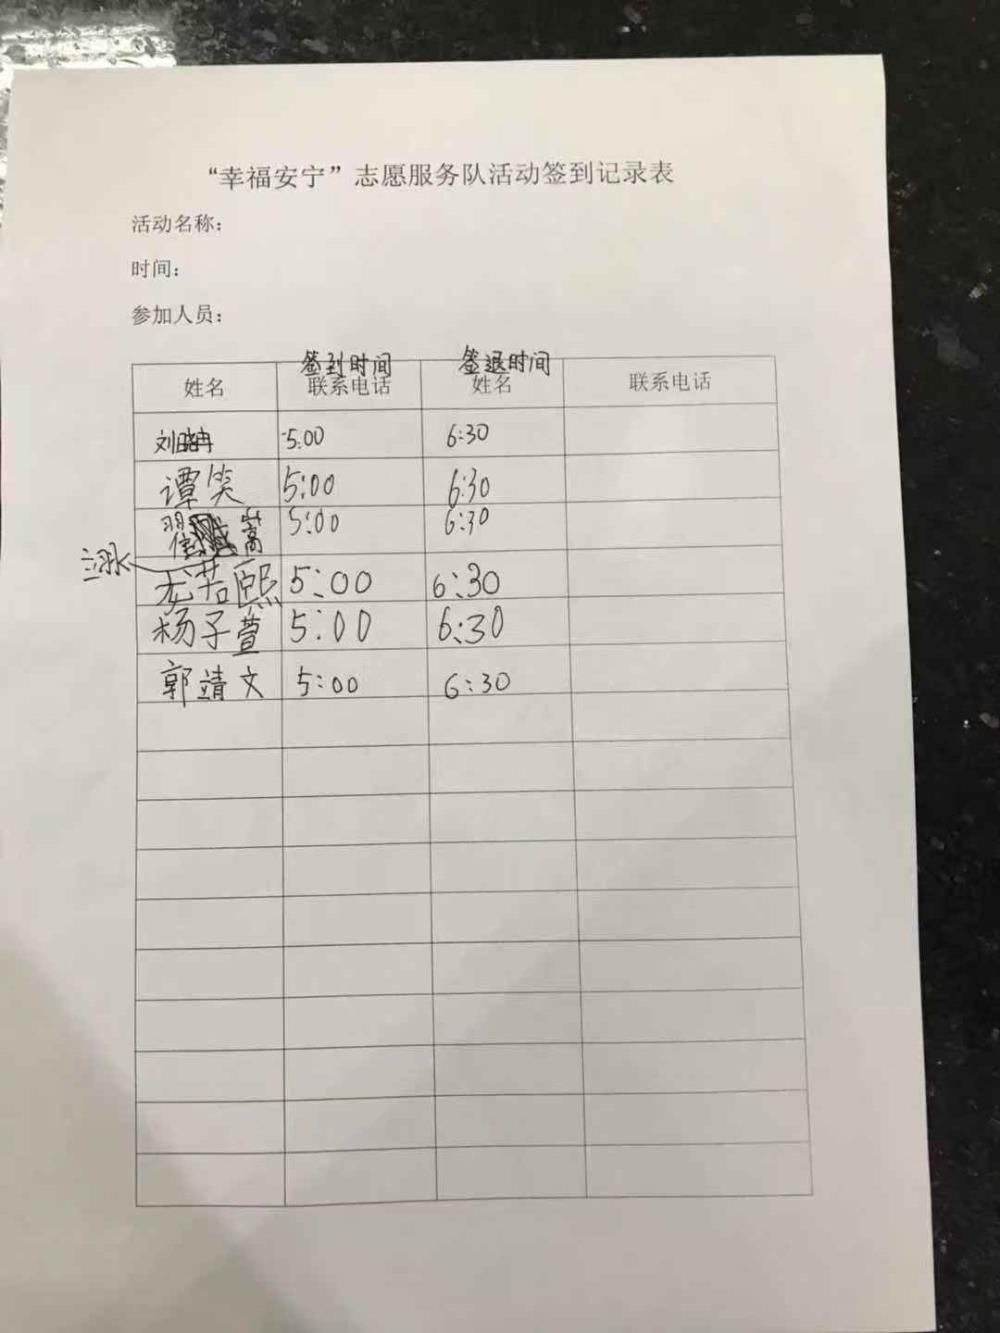 “幸福安宁”志愿服务队活动签到记录表
活动名称：
时间：
参加人员：
签到时间 签退时间
姓名 联系电话 姓名 联系电话
刘晓冉 5:00 6:30
谭笑 5:00 6:30
翟 嵩 5:00 6:30
尤若熙 5:00 6:30
杨子萱 5:00 6:30
郭靖文 5:00 6:30